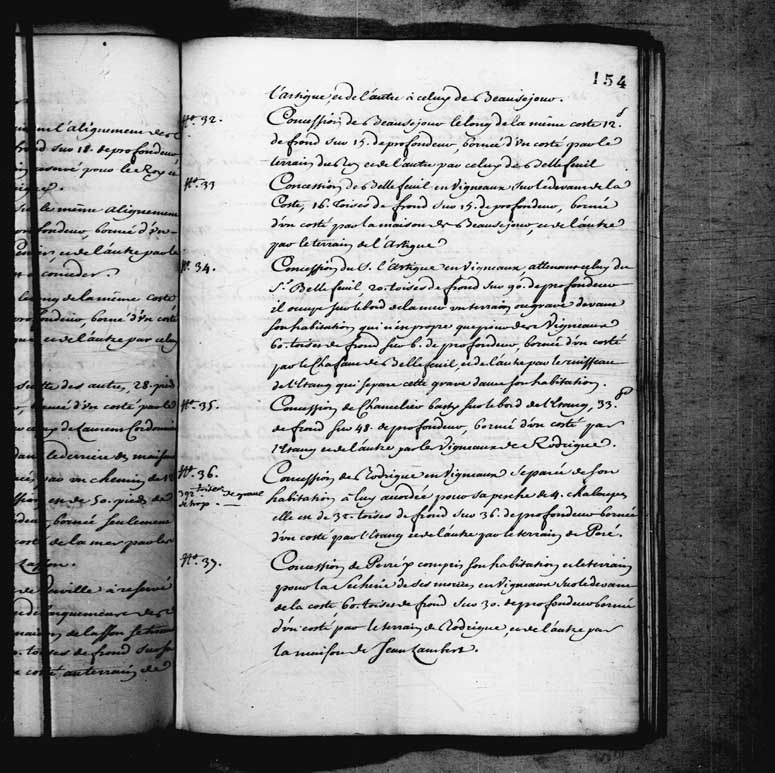 154
l'artigue, et de l'autre à celuy de Beausejour.
No. 32. Concession de Beausejour le long de la même coste 12.d
de frond sur 15. de profondeur, bornée d'un costé par le
terrain du Roy et de l'autre par celuy de Bellefeuil
No. 33 Concession de Bellefeuil en Vigneaux sur le devant de la
Coste, 16. toises de frond sur 15. de profondeur, borné
d'un costé par la maison de Beausejour, et de l'autre
par le terrain de l'Artigue
No. 34. Concession du S. l'artigue en Vigneaux, attenant celuy du
Sr. Bellefeuil 20. toises de frond sur 90. de profondeur
il ocupe sur le bord de la mer un terrain en grave devant
son habitation qui n'en propre que pour des Vigneaux
60. toises de frond sur 6. de profondeur, borné d'un costé
par le Chafaut de Bellefeuil, et de l'autre par le ruisseau
de l'Etang qui separe cette grave d'avec son habitation.
No. 35. Concession de Chancelier basty sur le bord de l'Etang, 33.ds
de frond sur 48. de profondeur, borné d'un costé par
l'Etang et de l'autre par les Vigneaux de Rodrigue.
No. 36 Concession de Rodrigue en Vigneaux separée de son
392. toises de grave de trop. habitation à luy acordée pour sa pesche de 4. chaloupes
elle en de 30. toises de frond sur 36. de profondeur bornée
d'un costé par l'Etang et de l'autre par le terrain de Peré.
No. 37. Concession de Perré y compris son habitation et le terrain
pour la Secherie de ses morües en Vigneaux sur le devant
de la coste 60. toises de frond sur 30. de profondeur borné
d'un costé par le terrain de Rodrigue, et de l'autre par
la maison de Jean Lambert.
l'alignement de
frond sur 18. de profondeur,
reservé pour le Roy
le même alignement
profondeur, borné d'un
et de l'autre par le
à conceder.
le long de la même coste
profondeur, borné d'un costé
et de l'autre par celuy
suitte des autres, 28. pieds
borné d'un costé par le
de Laurens Cordonnier
dans le derriere de maison
par un chemin de 18
en de 50. pieds de
bornée seulement
coste de la mer par les
Lasson.
de ville à reservé
maison de lasson
toises de frond sur
costé au terrain de